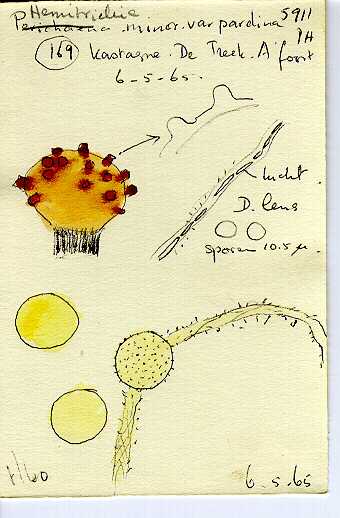 Hemitrichia
Perichaena minor. var pardina 5911
169 kastagne. De Treek. A'foort PH
6-5-65.
lucht.
D. lens
sporen 10.5 µ
1/60
6.5.65